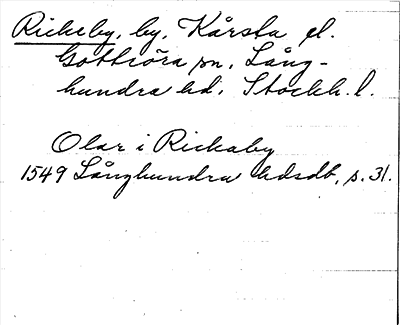 Rickeby, by, Kårsta el.
Gottröra sn, Lång-
hundra hd, Stockh. l.
Olar i Rickaby
1549 Långhundra hdsdb, s. 31.